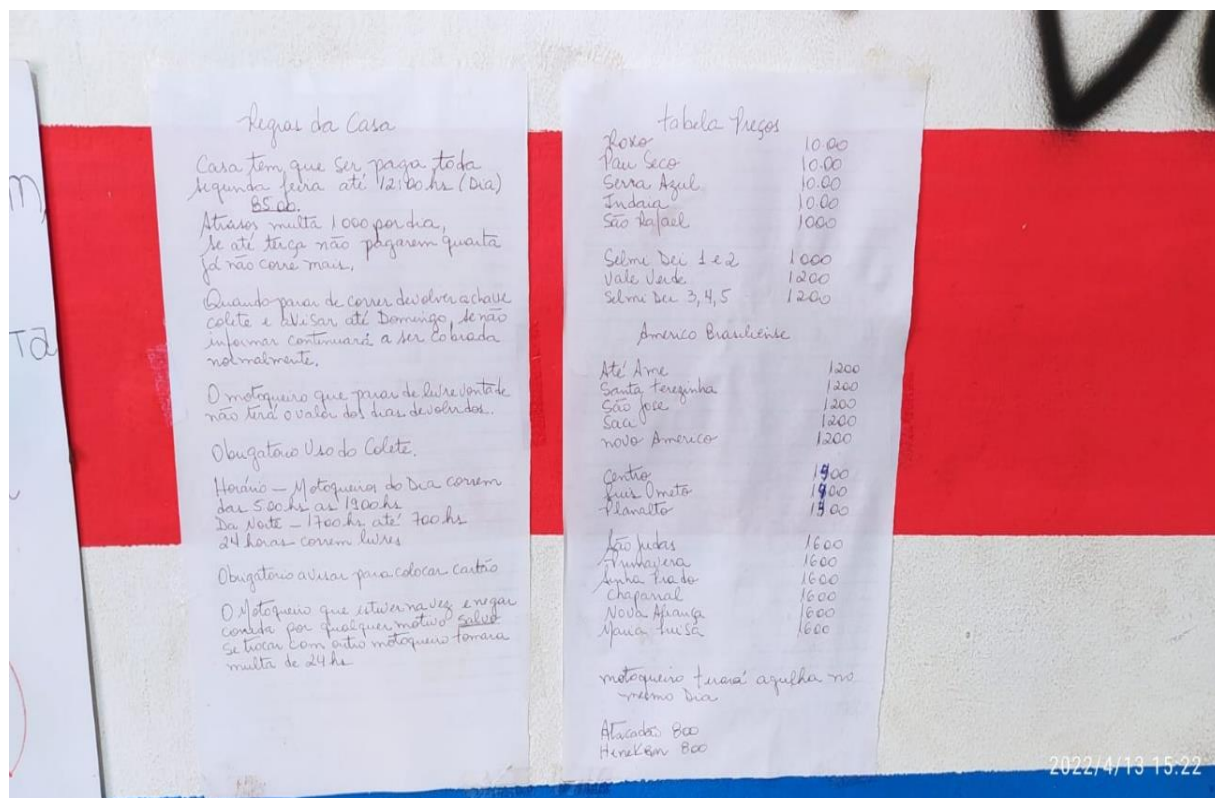 Regras da Casa
Casa tem que ser paga toda
segunda feira até 12:00 hs (Dia)
85.00.
Atrasos multa 1000 por dia,
se até terça não pagarem quarta
já não corre mais,
Quando parar de correr devolver a chave
colete e avisar até Domingo, se não
informar continuará a ser cobrada
normalmente.
O motoqueiro que parar de livre vontade
não terá o valor dos dias devolvidos..
Obrigatorio Uso do Colete.
Horário - Motoqueiros do Dia correm
das 500 hs as 1900 hs
Da Noite - 1700 hs até 700 hs
24 horas correm livres
Obrigatorio avisar para colocar cartão
O Motoqueiro que estiver na vez e negar
corrida por qualquer motivo salvo
se trocar com outro motoqueiro tomara
multa de 24 hs
tabela Preços
Roxo 10.00
Pau Seco 10.00
Serra Azul 10.00
Indaia 10.00
São Rafael 1000
Selmi Dei 1 e 2 1000
Vale Verde 1200
Selmi Dei 3, 4, 5 1200
Americo Brasiliense
Até Ame 1200
Santa terezinha 1200
São jose 1200
Saci 1200
novo Americo 1200
Centro
Luis Ometo
Planalto
São Judas 1600
Primavera 1600
Prado 1600
Chaparral 1600
Nova Aliança 1600
Maria Luisa 1600
motoqueiro tirará agulha no
mesmo Dia
Atacadão 800
800
m,
Ta
2022/4/13 15:22